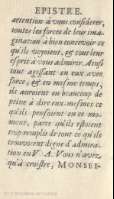 EPISTRE.
attention à vous considerer,
toutes les forces de leur ima-
gination à bien concevoir ce
qu'ils voyent, & tout leur
esprit à vous admirer. Ainsi
tout agissant en eux avec
force, & en mesme temps,
ils auroient eu beaucoup de
peine à dire eux-mesmes ce
qu'ils pensoient en ce mo-
ment, parce qu'ils estoient
trop remplis de tout ce qu'ils
trouvoient digne d'admira-
tion en V. A. Vous n'avez,
qu'à croistre, MONSEI-